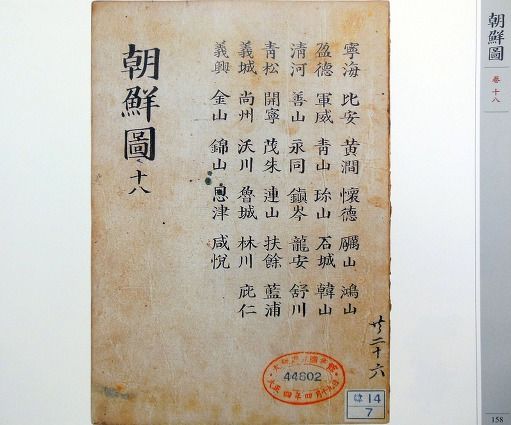 朝鮮圖 卷十八
寧海 比安 黃澗 懷德 礪山 鴻山
盈德 軍威 青山 珎山 石城 韓山
清河 善山 永同 鎮岑 龍安 舒川
青松 開寧 茂朱 連山 扶餘 藍浦
義城 尚州 沃川 魯城 林川 庇仁
義興 金山 錦山 恩津 咸悅
朝鮮圖 十八
共二十六
44802
14
7
158